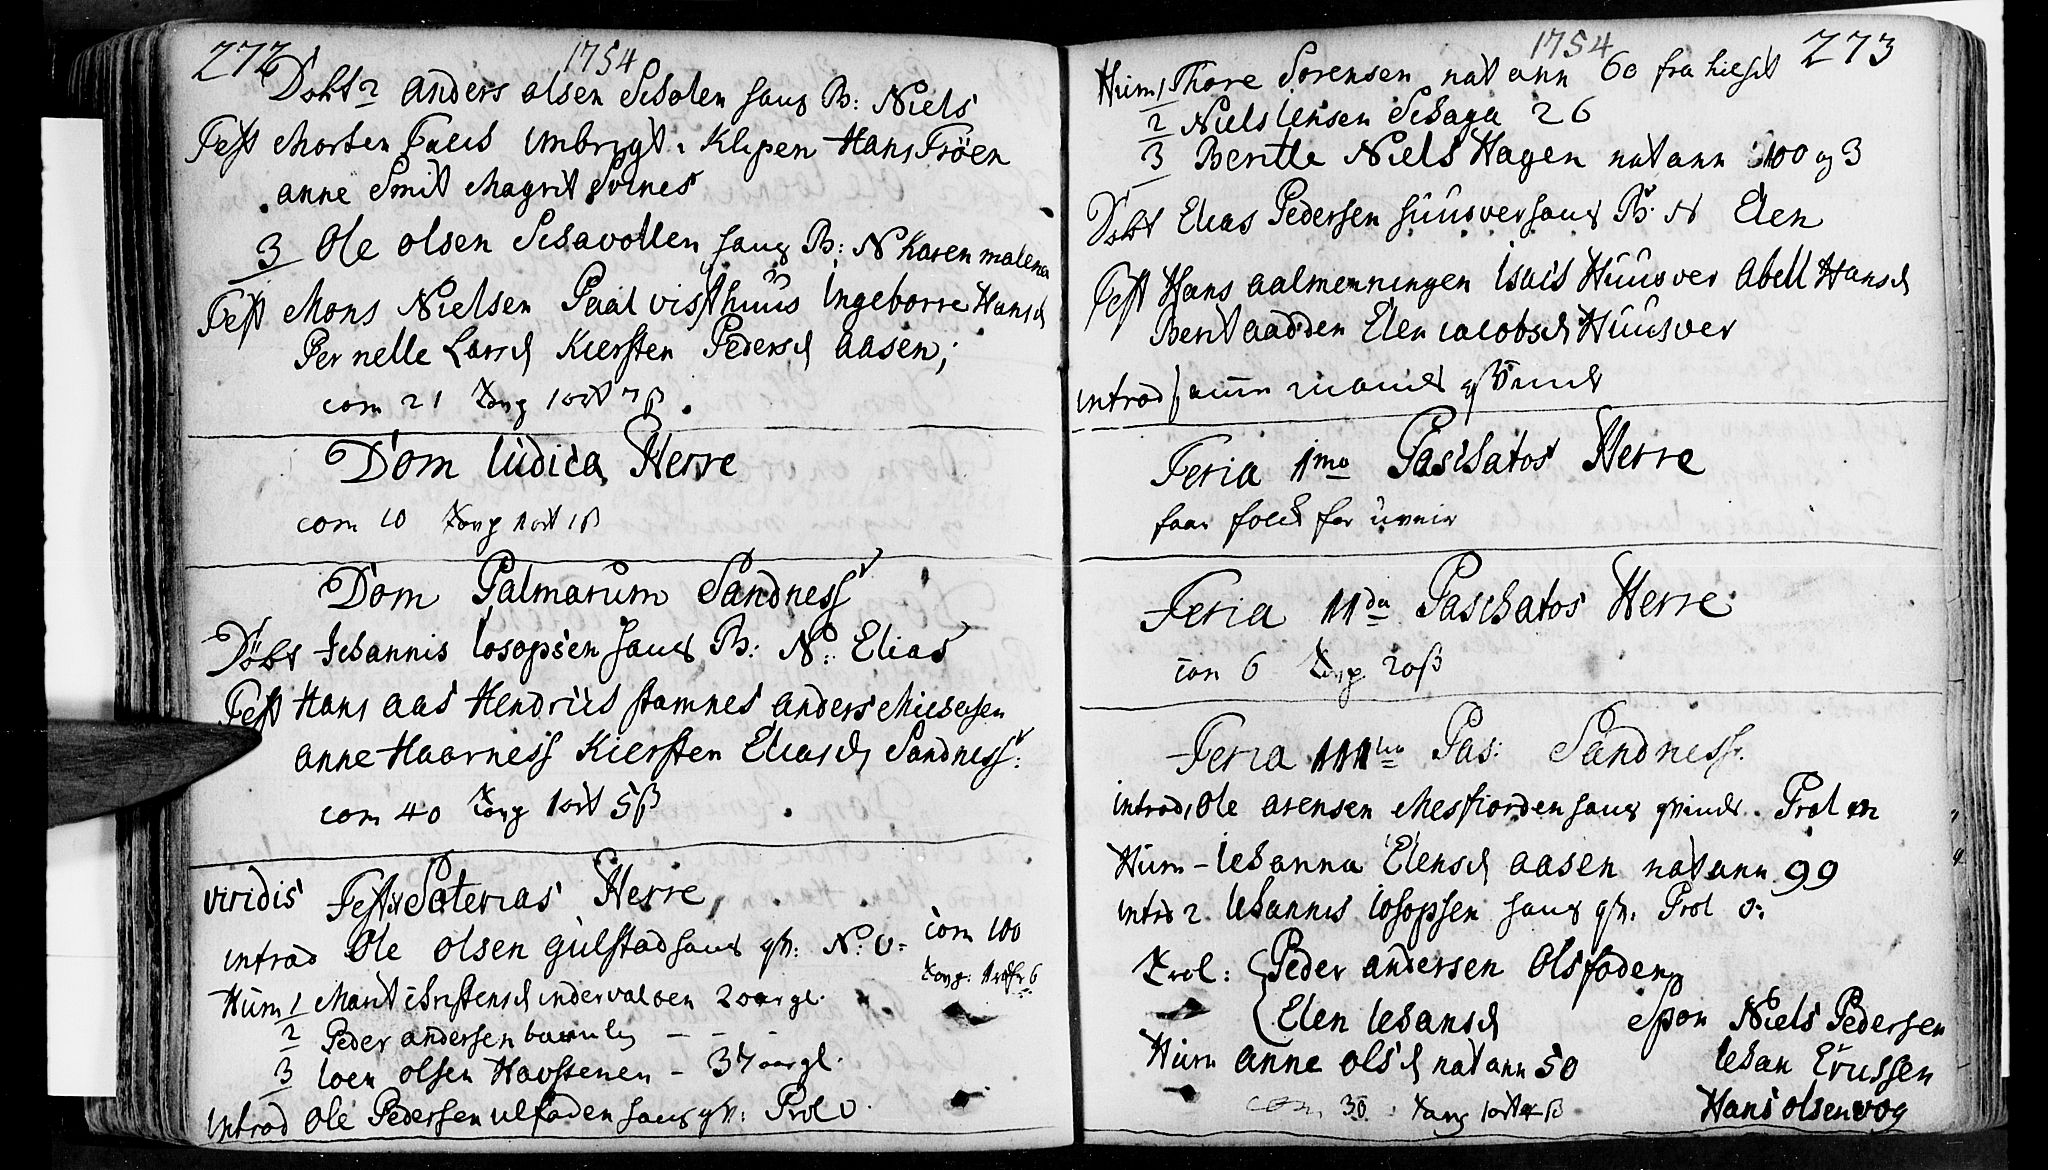 272 1754
Døbt 2 anders olsen Scholen hans B: Niels
Test Morten Falch Klipen Hans Tröen
anne Smit Magrit Svines
3 Ole olsen Schavollen hans B: N Karen malena
Test Mons Nielsen Paal visthuus Ingeborre Hansd
Pernelle Larsd Kiersten Pedersd aasen;
com 21 Tavg 1 ort 7 ß
Dom Iudica Herre
com 10 Tavg 1 ort 1 ß
Dom Palmarum Sandness
Döbt Iohannis Iosopsen hans B: N: Elias
Test Hans aas Hendrich stamnes anders Michelsen
anne Haarness Kiersten Eliasd Sandness:
com 40 Tavg 1 ort 5 ß
viridis Fest Soterias Herre
introd Ole olsen gulstad hans qv: N: v: com 100
Hum 1 Marit Christensd 2 aar gl.
2 Peder andersen
3 Ioen olsen Havstenen – 37 aar gl.
introd Ole Pedersen ulfaden hans qv: Prol v.
1754 273
Hum 1 Thore Sorensen nat ann 60
2 Niels Iensen Schaga 26
3 Beritte Niels Hagen nat ann 100 og 3
Døbt Elias Pedersen huusver hans B: N Elen
Test Hans aalmenningen Isach Huusver Abell Hansd
Berit aadden Elen Iacobsd Huusver
introd
Feria 1mo Paschatos Herre
faar folch for uveir
Feria 11da Paschatos Herre
com 6 Tavg 20 ß
Feria 111tia Pas: Sandness.
introd 1 Ole arensen Mesfiorden hans qvinde. Prol
Hum – Iohanna Elensd aasen nat ann 99
introd 2. Iohannis Iosopsen hans qv. Prol v:
Trol: Peder andersen Olsfaden
Elen Iohansd Spon Niels Pedersen
Hum anne olsd nat ann 50 Iohan Ericssen
com 30 Tavg 1 ort 4 ß Hans olsen vog